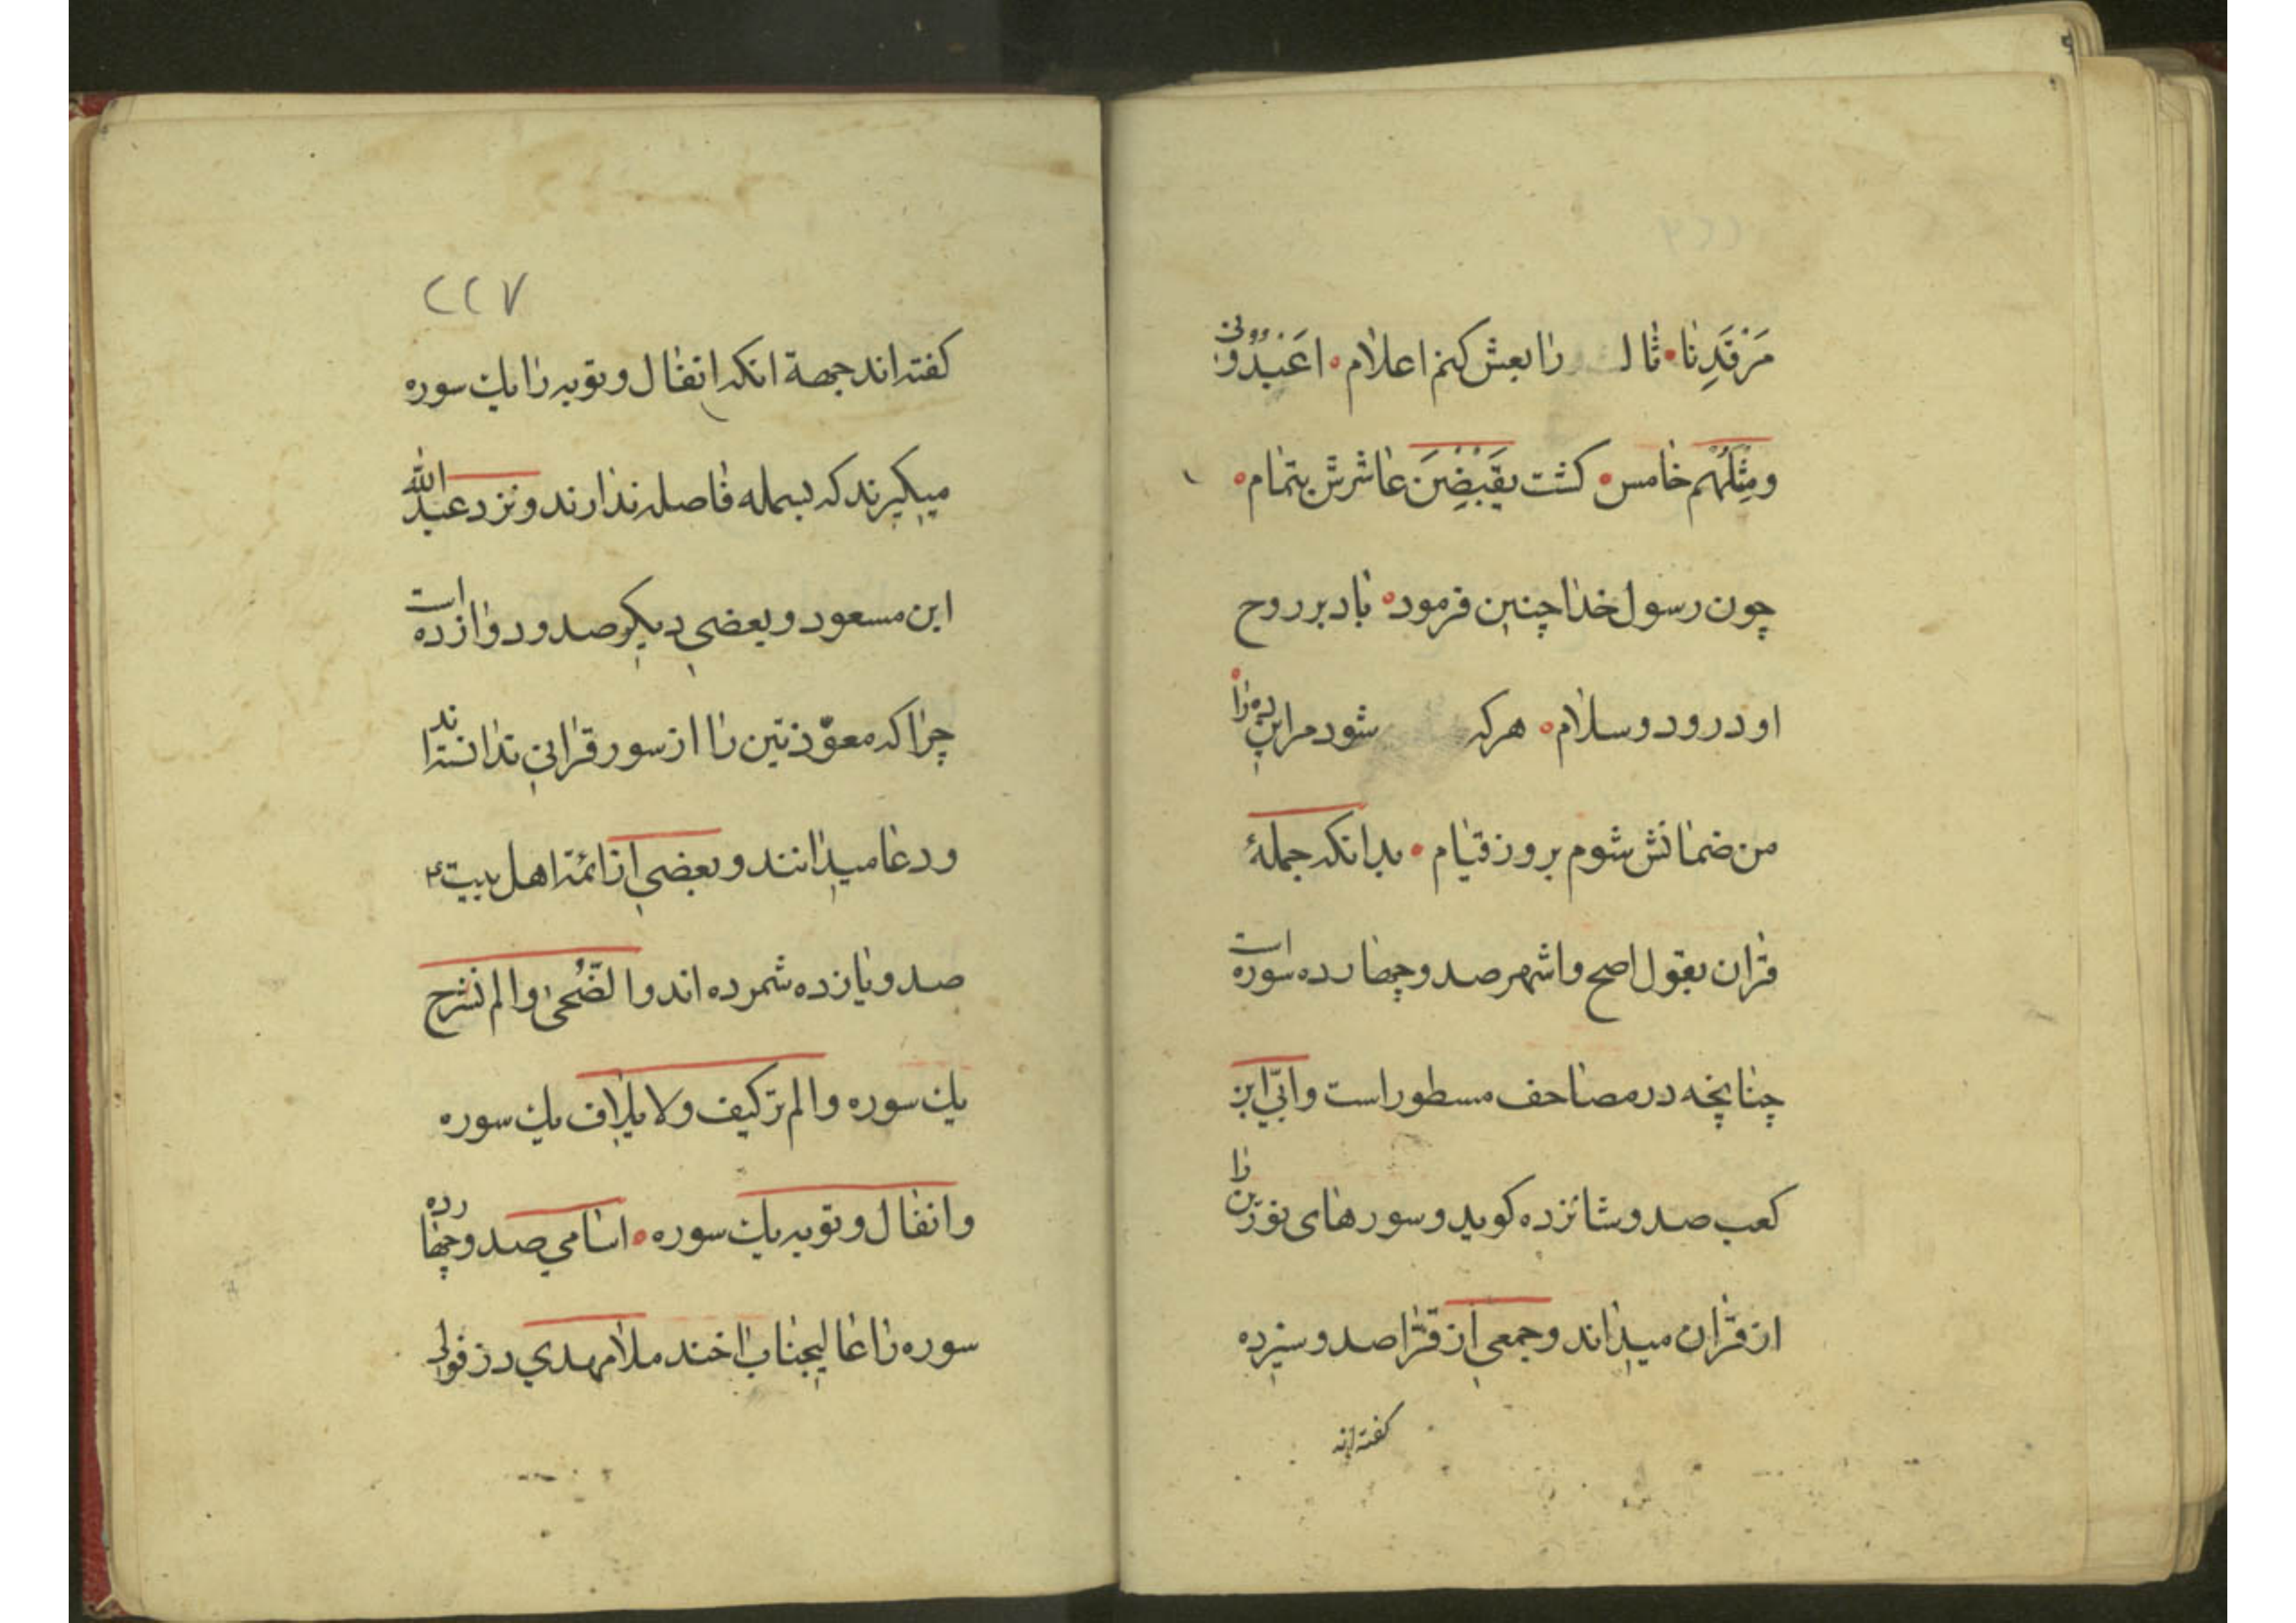 مَرْقَدِنَا • ثال را بعش کنم اعلام • اعْبُدُونی
ومِثْلَهُم خامس • کشت یَقْبِضْنَ عاشرش بتمام •
چون رسول خدا چنین فرمود • باد بر روح
او درود و سلام • هرکه شود مر این ده را
من ضمانش شوم بروز قیام • بدانکه جملۀ
قران بقول اصح و اشهر صد و چهارده سوره است
چنانچه در مصاحف مسطور است و ابیّ ابن
کعب صد و شانزده کوید و سورهای نورین را
از قران میداند و جمعی از قرا صد و سیزده
کفته اند
۲۲۷
کفته اند جهة انکه انفال و توبه را یك سوره
میکیرند که بسمله فاصله ندارند و نزد عبد الله
ابن مسعود و بعضی دیکر صد و دوازده است
چرا که معوّذتین را از سور قرانی ندانسته اند
و دعا میدانند و بعضی از ائمه اهل بیت ع
صد و یازده شمرده اند والضُّحی و الم نشرح
یك سوره و الم تر کیف و لایلاف یك سوره
و انفال و توبه یك سوره • اسامی صد و چهارده
سوره را عالیجناب اخند ملا مهدی دزفولی